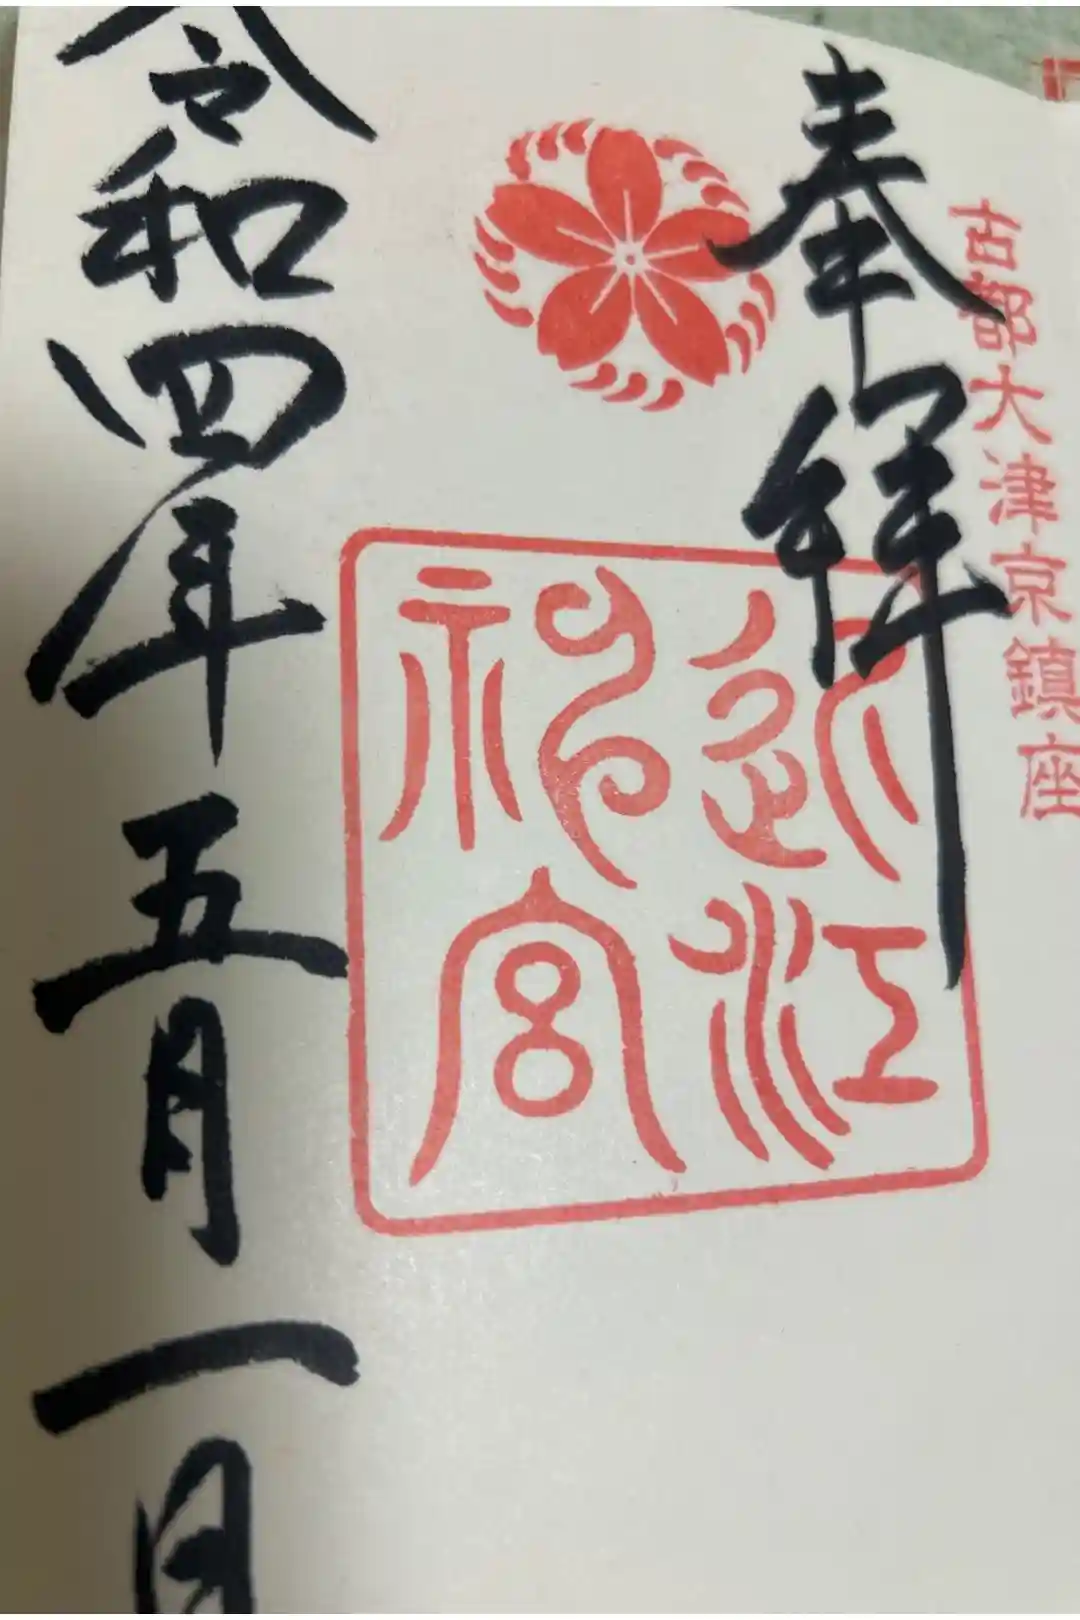 古都大津京鎮座
奉拝
近江
神宮
令和四年五月一日